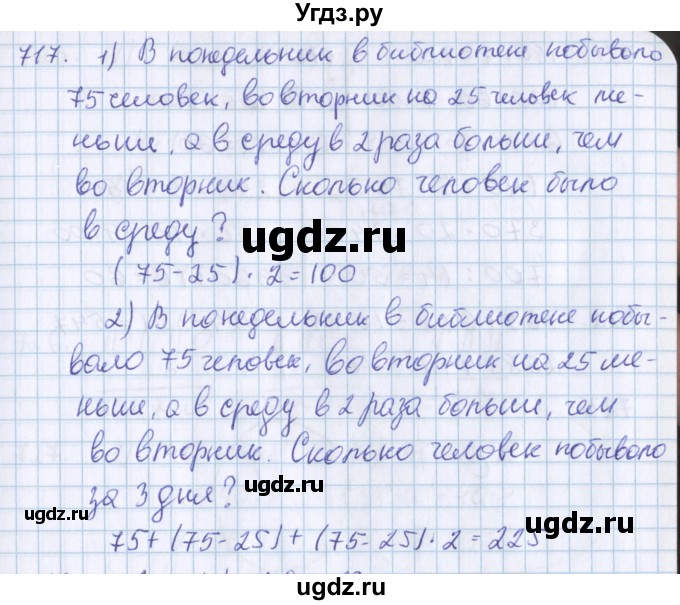 Угдз.ру
717. 1) В понедельник в библиотеке побывало
75 человек, во вторник на 25 человек ме-
ньше, а в среду в 2 раза больше, чем
во вторник. Сколько человек было
в среду?
ugdz.ru
(75-25)·2=100
2) В понедельник в библиотеке побы-
вало 75 человек, во вторник на 25 ме-
ньше, а в среду в 2 раза больше, чем
во вторник. Сколько человек побывало
за 3 дня?
ugdz.ru
ugdz.ru
ugdz.ru
75+(75-25)+(75-25)·2=225
ugdz.ru